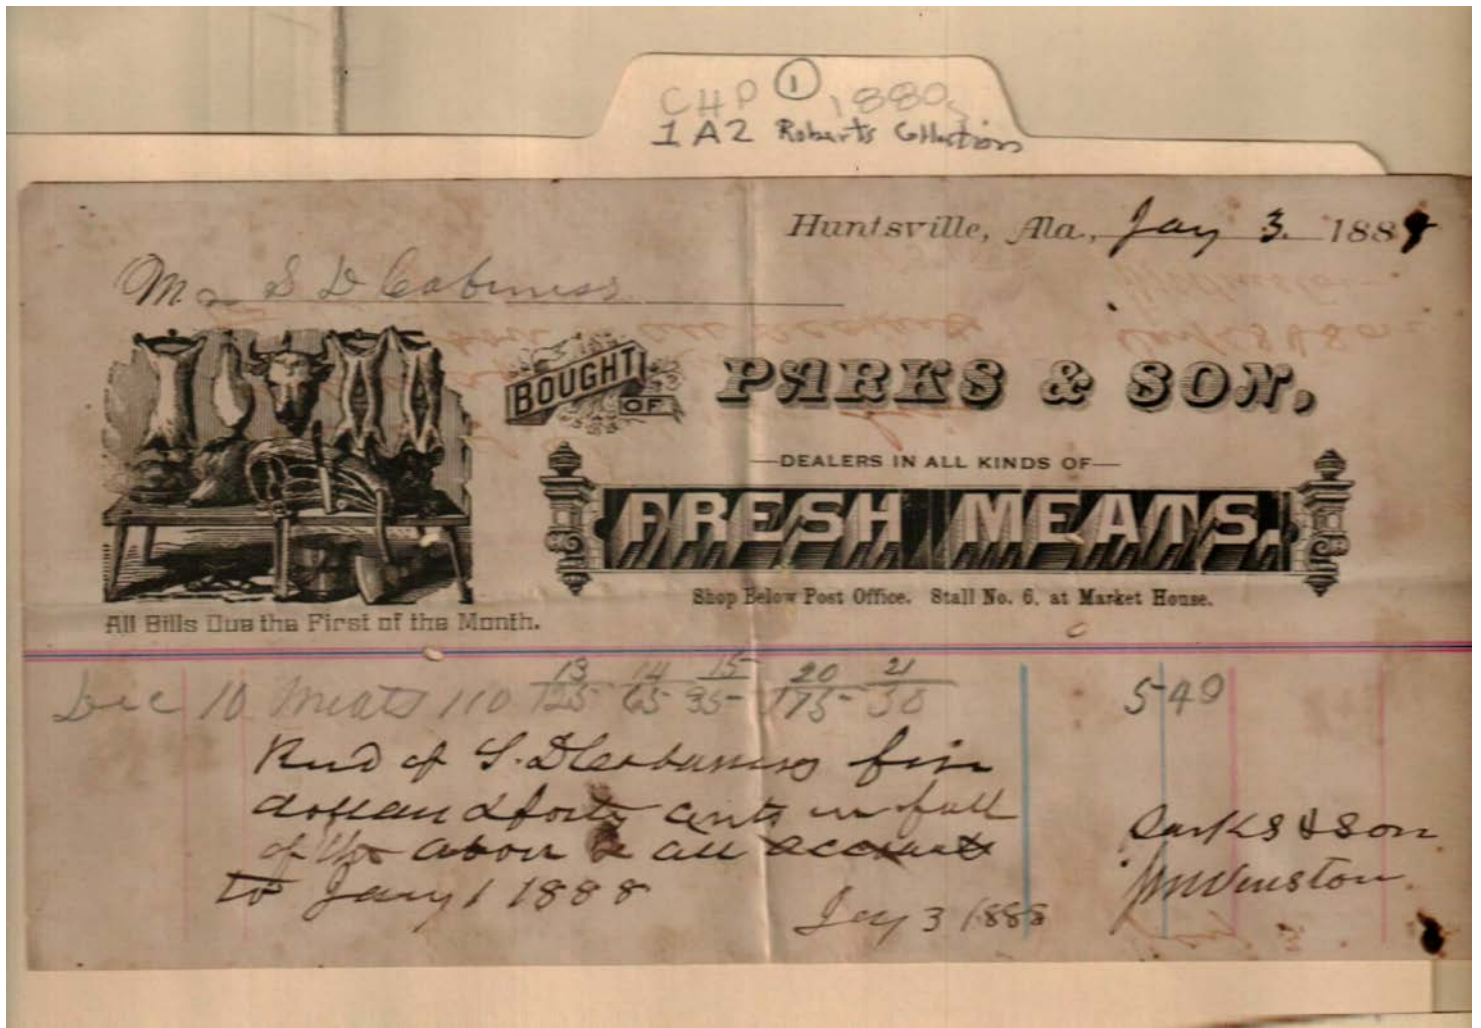 CHP 1 1880s
1A2 Roberts Collection
Huntsville, Ala., Jany 3. 1888
Mr S D Cabaniss
BOUGHT OF PARKS & SON,
DEALERS IN ALL KINDS OF
FRESH MEATS.
Shop Below Post Office. Stall No. 6, at Market House.
All Bills Due the First of the Month.
13 14 15 20 21
Dec 10 Meats 110 125 65 35 175 30 5 40
Recd of S. D Cabaniss five
dollars & forty cents in full
of the above & all accounts
to Jany 1 1888
Parks & Son
Jany 3 1888